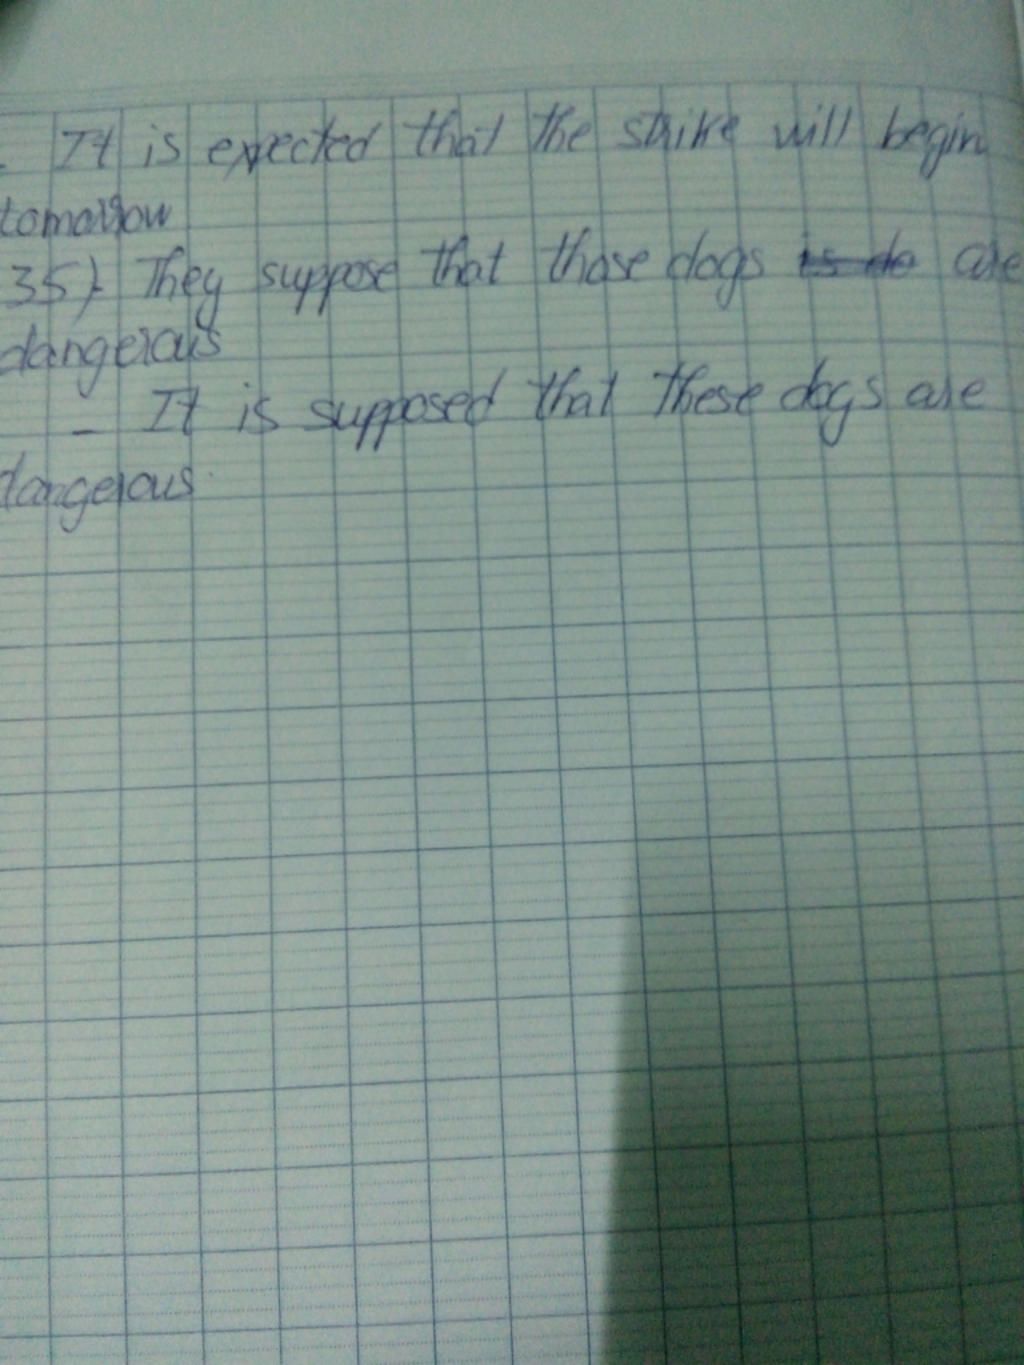 - It is expected that the strike will begin
tomorrow
35) They suppose that those dogs is de are
dangerous
- It is supposed that these dogs are
dangerous.